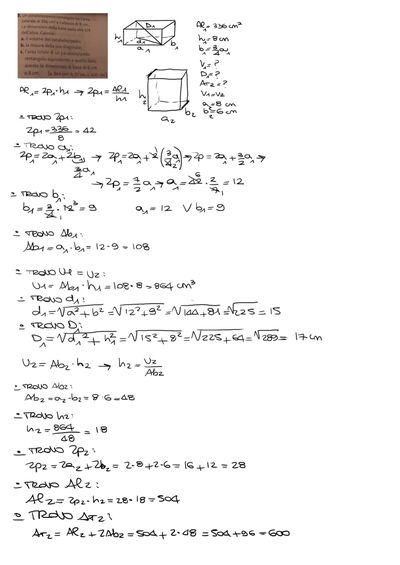 Al₁ = 336 cm²
h₁ = 8 cm
b₁ = 3/4 a₁
V₁ = ?
D₁ = ?
Ar₂ = ?
V₁ = V₂
a₂ = 8 cm
b₂ = 6 cm
D₁
h₁
d₁
b₁
a₁
h₂
b₂
a₂
Al₁ = 2p₁ · h₁ → 2p₁ = Al₁/h₁
• TROVO 2p₁:
2p₁ = 336/8 = 42
• TROVO a₁:
2p₁ = 2a₁ + 2b₁ → 2p = 2a₁ + 2(3/4 a₁) → 2p = 2a₁ + 3/2 a₁ →
3/4 a₁
→ 2p = 7/2 a₁ → a₁ = 42 · 2/7 = 12
• TROVO b₁:
b₁ = 3/4 · 12 = 9 a₁ = 12 V b₁ = 9
• TROVO Ab₁:
Ab₁ = a₁ · b₁ = 12 · 9 = 108
• TROVO V₁ = V₂:
V₁ = Ab₁ · h₁ = 108 · 8 = 864 cm³
• TROVO d₁:
d₁ = √a² + b² = √12² + 9² = √144 + 81 = √225 = 15
• TROVO D₁:
D₁ = √d₁² + h₁² = √15² + 8² = √225 + 64 = √289 = 17 cm
V₂ = Ab₂ · h₂ → h₂ = V₂/Ab₂
• TROVO Ab₂:
Ab₂ = a₂ · b₂ = 8 · 6 = 48
• TROVO h₂:
h₂ = 864/48 = 18
• TROVO 2p₂:
2p₂ = 2a₂ + 2b₂ = 2 · 8 + 2 · 6 = 16 + 12 = 28
• TROVO Al₂:
Al₂ = 2p₂ · h₂ = 28 · 18 = 504
• TROVO Ar₂:
Ar₂ = Al₂ + 2Ab₂ = 504 + 2 · 48 = 504 + 96 = 600